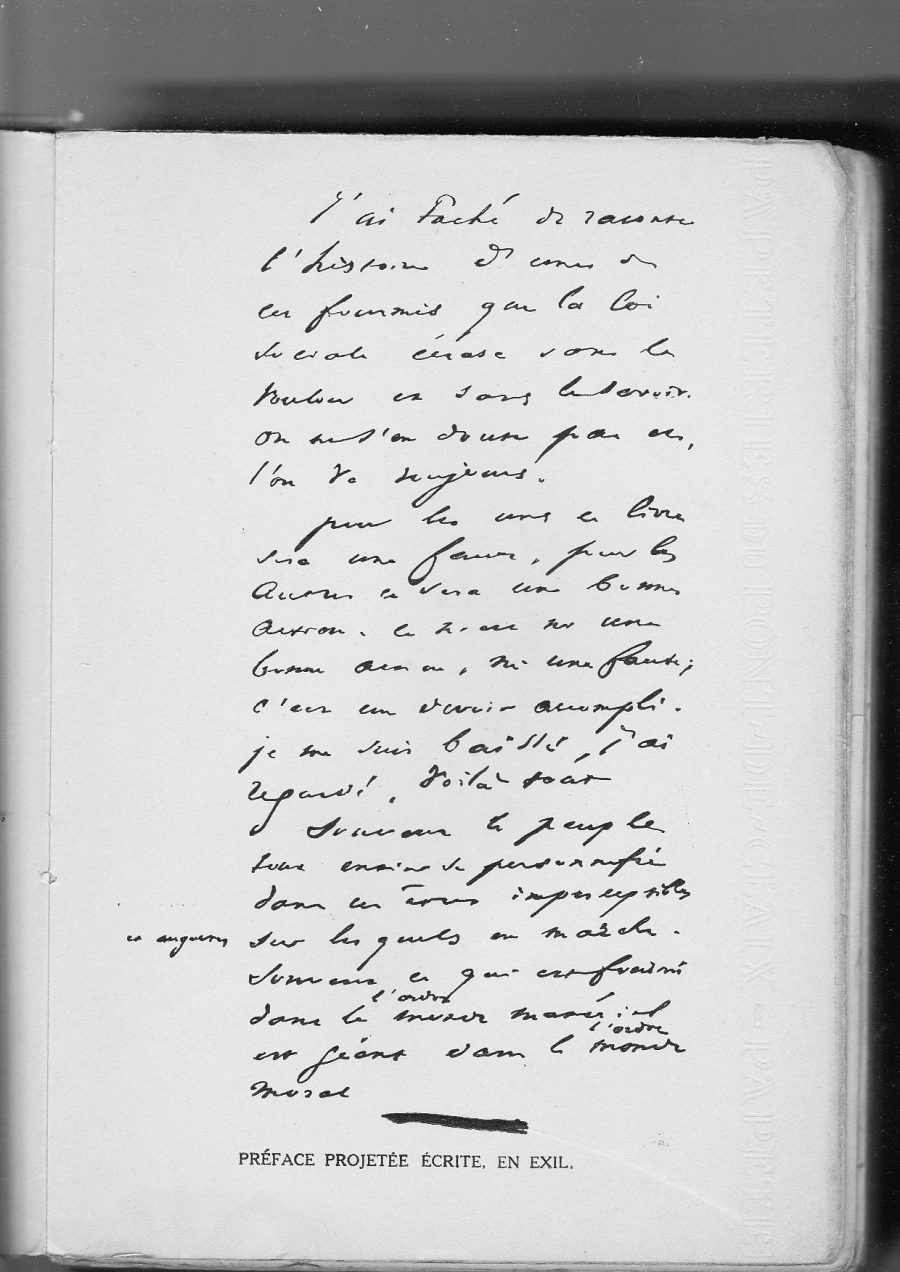 J'ai tâché de raconter
l'histoire d'une de
ces fourmis que la loi
sociale écrase sans le
vouloir et sans le savoir.
On ne s'en doute pas et,
l'on va toujours.
pour les uns ce livre
sera une faute, pour les
autres ce sera une bonne
action. Ce n'est ni une
bonne action, ni une faute;
c'est un devoir accompli.
je me suis baissé, j'ai
regardé, Voilà tout
Souvent le peuple
tout entier se personnifie
dans ces êtres imperceptibles
et augustes
sur lesquels on marche.
Souvent ce qui est fourmi
l'ordre
dans le monde matériel
est géant dans le monde
l'ordre
moral
PRÉFACE PROJETÉE ÉCRITE, EN EXIL.
PAPETERIES DU PONT-DE-CLAIX - PAPETE